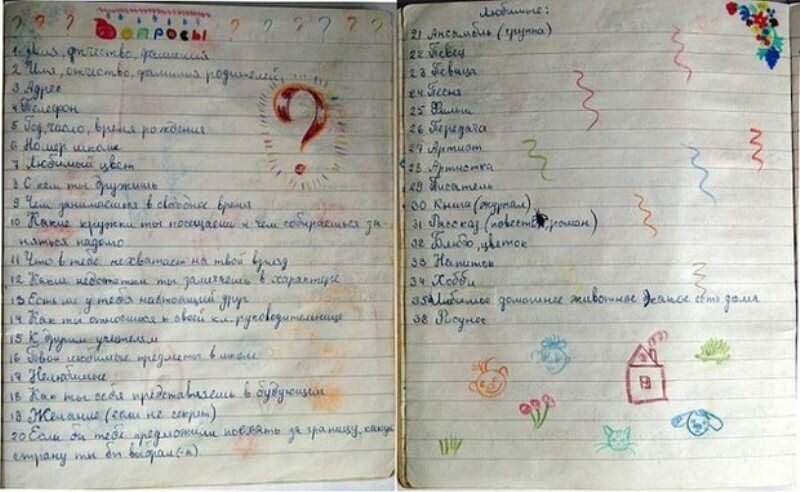 Вопросы
1 Имя, отчество, фамилия
2 Имя, отчество, фамилия родителей
3 Адрес
4 Телефон
5 Год, число, время рождения
6 Номер школы
7 Любимый цвет
8 С кем ты дружишь
9 Чем занимаешься в свободное время
10 Какие кружки ты посещаешь и чем собираешься за
няться надомо
11 Что в тебе нехватает на твой взгляд
12 Какие недостатки ты замечаешь в характере
13 Есть ли у тебя настоящий друг
14 Как ты относишся к своей кл. руководительнице
15 К другим учителям
16 Твои любимые предметы в школе
17 Нелюбимые
18 Как ты себя представляешь в будующем
19 Желание (если не секрет)
20 Если бы тебе предложили поехать за границу, какую
страну ты бы выбрал(-а)
Любимые:
21 Ансамбль (группа)
22 Певец
23 Певица
24 Песня
25 Фильм
26 Передача
27 Артист
28 Артистка
29 Писатель
30 Книга (журнал)
31 Рассказ (повесть, роман)
32 Блюдо, цветок
33 Напиток
34 Хобби
35 Любимое домашнее животное какое есть дома
36 Рисунок